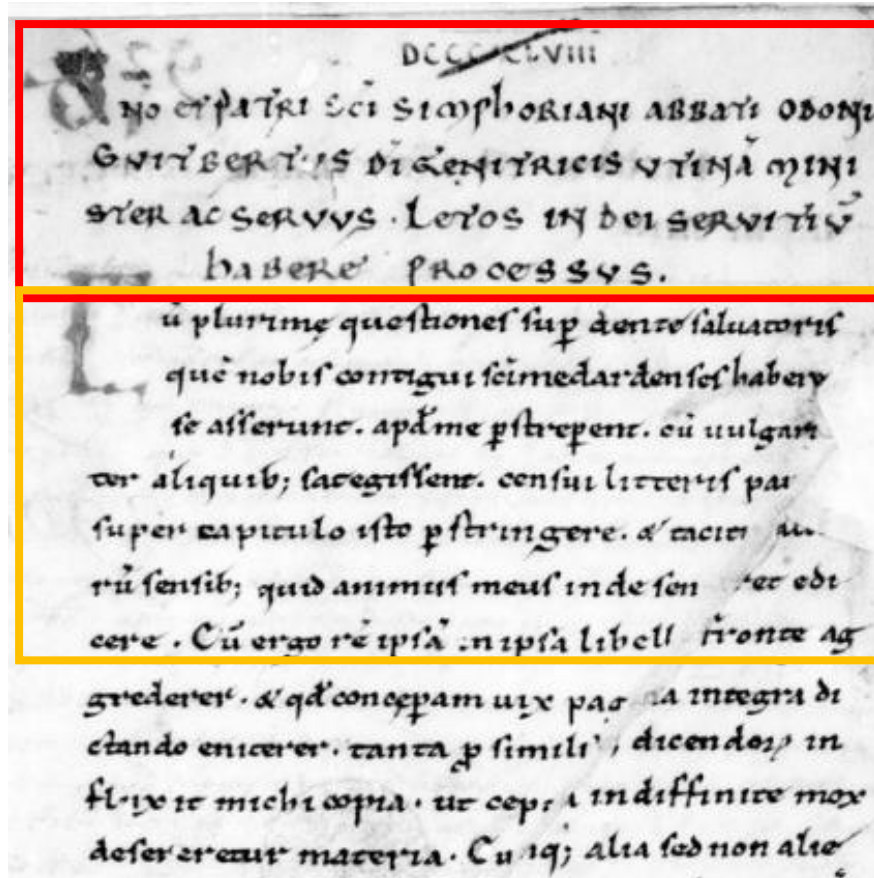 DCCCCLVIII
DNO ET PATRI SCI SIMPHORIANI ABBATI ODONI
GUITBERTUS DI GENITRICIS UTINĀ MINI
STER AC SERVUS. LETOS IN DEI SERVITIŪ
HABERE PROCESSUS.
Cū plurimę questiones sup dente saluatoris
quē nobis contigui scimedardenses haberi
se asserunt. apd me pstrepent. cū uulgari
ter aliquib; sategissent. censui litteris
super capitulo isto pstringere. & taciti
rū sensib; quid animus meus inde edi
cere. Cū ergo rē ipsā in ipsa fronte ag
grederer. & qd concepam uix integra di
ctando eniterer. tanta p simili dicendoꝝ in
fluxit michi copia. ut indiffinite mox
desereretur materia. alia sed non alie